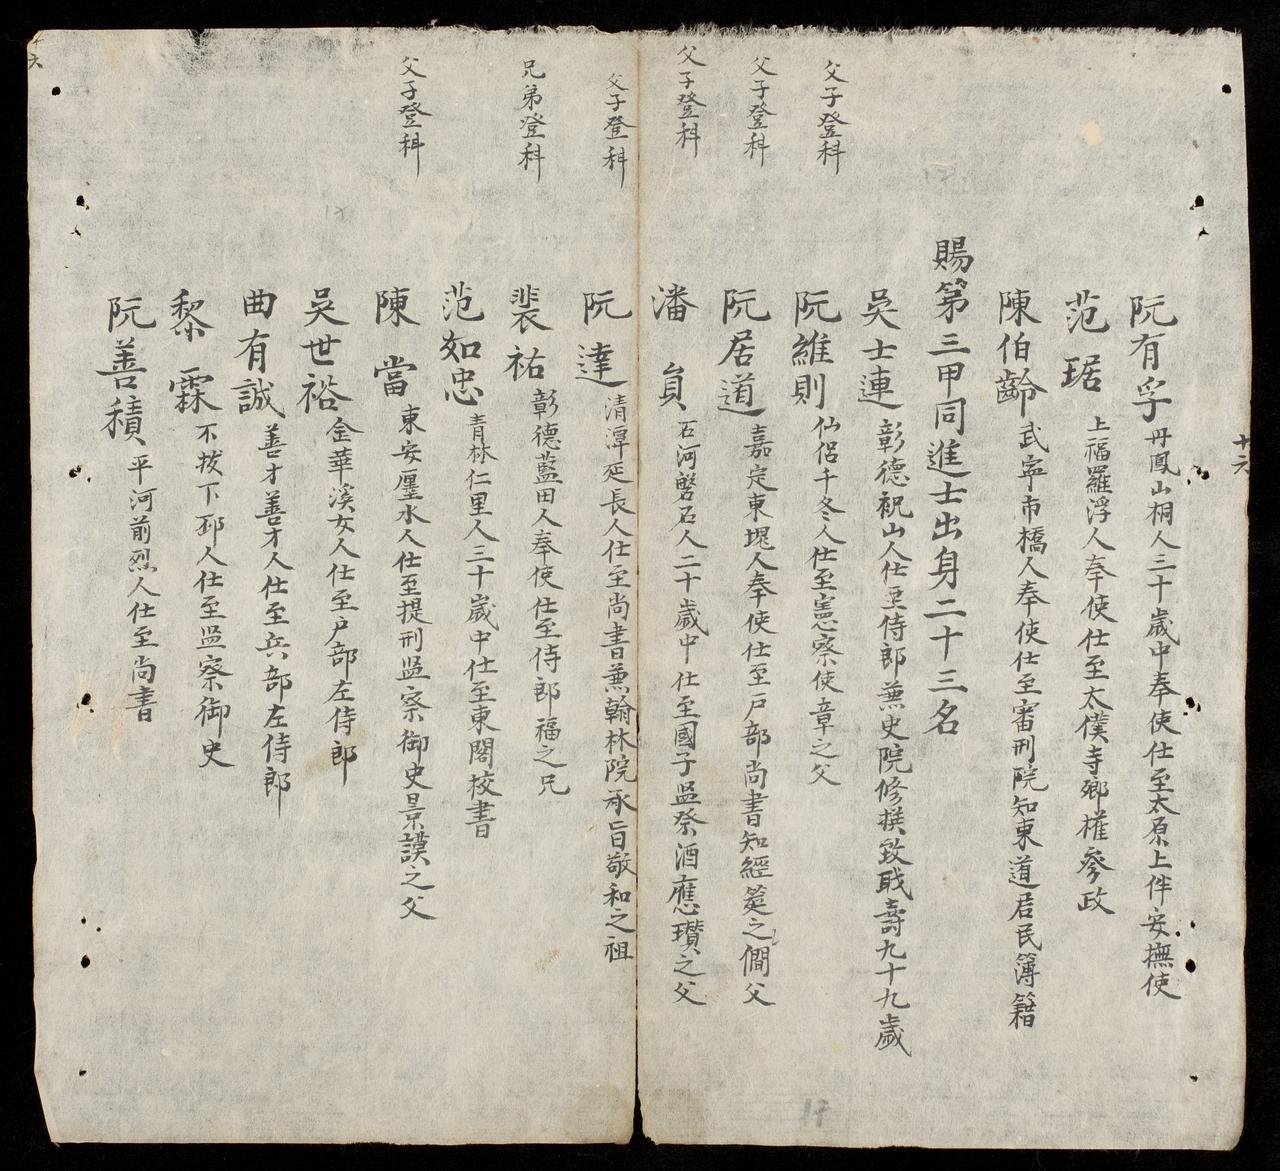 阮有孚丹鳳山桐人三十歲中奉使仕至太原上伴安撫使
范琚上福羅浮人奉使仕至太僕寺鄉權參政
陳伯齡武寧市橋人奉使仕至審刑院知東道居民簿籍
賜第三甲同進士出身二十三名
吳士連彰德祝山人仕至侍郎兼史院修撰致戝壽九十九歲
父子登科
阮維則仙侶千冬人仕至憲察使章之父
父子登科
阮居道嘉定東堒人奉使仕至户部尚書知經筵之僩父
父子登科
潘貟石河磐石人二十歲中仕至國子监祭酒應瓚之父
父子登科
阮達清潭延長人仕至尚書兼翰林院承旨敬和之祖
兄弟登科
裴祐彰德藍田人奉使仕至侍郎福之兄
范如忠青林仁里人三十歲中仕至東閣校書
父子登科
陳當東安厘水人仕至提刑监察御史景謨之父
吳世裕金華溪女人仕至户部左侍郎
曲有誠善才善才人仕至兵部左侍郎
黎霖不拔下邳人仕至监察御史
阮善積平河前烈人仕至尚書
十六
六
17